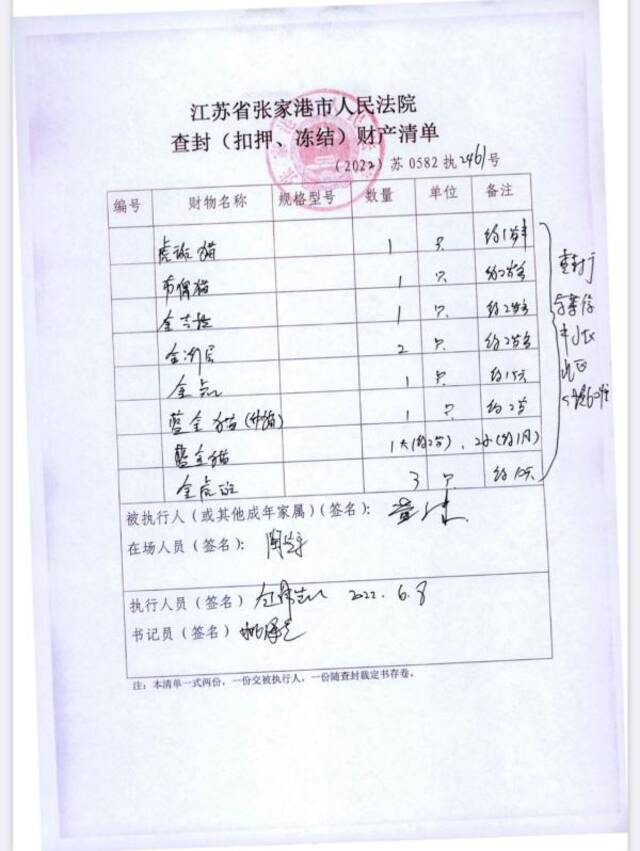 江苏省张家港市人民法院
查封（扣押、冻结）财产清单
（2022）苏 0582 执 2461 号
编号 财物名称 规格型号 数量 单位 备注
虎斑猫 1 只 约1岁半
布偶猫 1 只 约2岁多
金吉拉 1 只 约2岁多
金渐层 2 只 约2岁多
金点 1 只 约15天
蓝金猫 1 只 约2岁
蓝金猫 1大（约2岁），2小（约1月）
金虎斑 3 只 约10天
查封于
被执行人（或其他成年家属）（签名）：
在场人员（签名）：
执行人员（签名） 2022. 6. 8
书记员（签名）
注：本清单一式两份，一份交被执行人，一份随查封裁定书存卷。